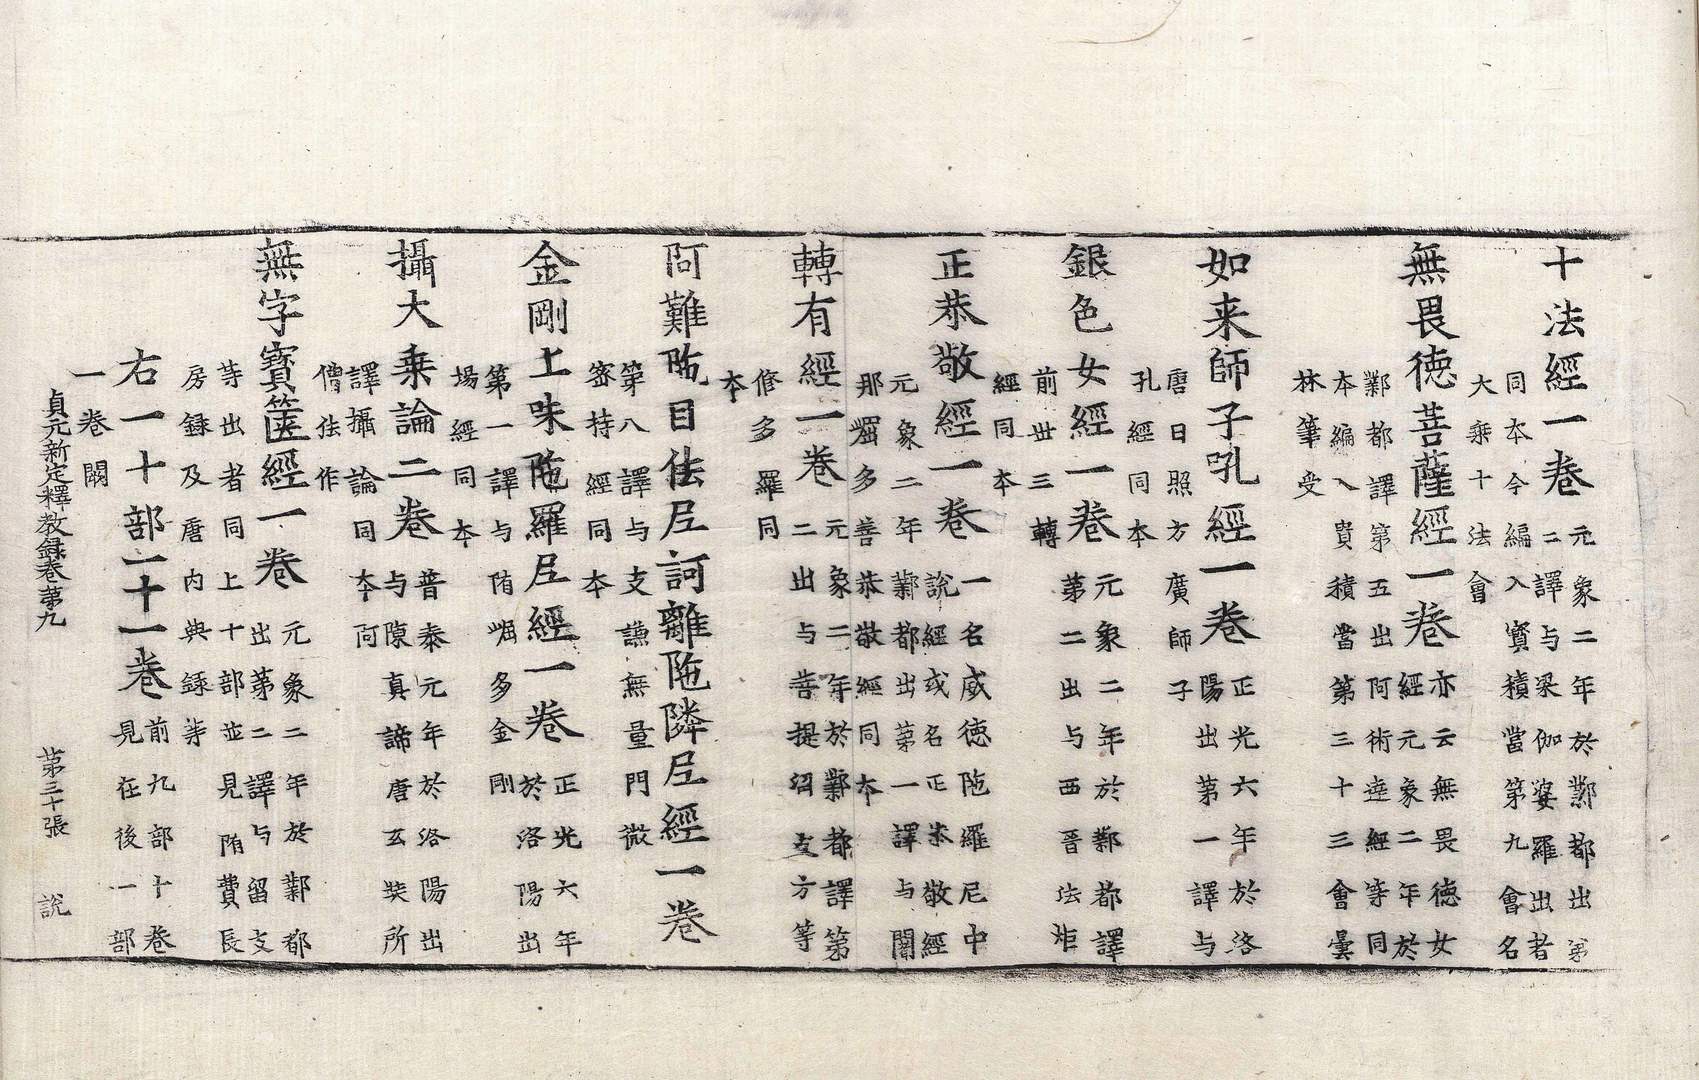 十法經一卷
元象二年於鄴都出第
二譯与梁伽婆羅出者
同本今編入寳積當第九會名
大乘十法會
無畏徳菩薩經一卷
亦云無畏徳女
經元象二年於
鄴都譯第五出阿術達經等同
本編入寳積當第三十三會曇
林筆受
如来師子吼經一卷
正光六年於洛
陽出第一譯与
唐日照方廣師子
孔經同本
銀色女經一卷
元象二年於鄴都譯
第二出与西晉法炬
前世三轉
經同本
正恭敬經一卷
一名威徳陁羅尼中
說經或名正恭敬經
元象二年鄴都出第一譯与闍
那崛多善恭敬經同本
轉有經一卷
元象二年於鄴都譯第
二出与菩提留支方等
修多羅同
本
阿難陁目佉尼訶離陁隣尼經一卷
第八譯与支謙無量門微
密持經同本
金剛上味陁羅尼經一卷
正光六年
於洛陽出
第一譯与隋崛多金剛
場經同本
攝大乘論二卷
普泰元年於洛陽出
与陳真諦唐玄奘所
譯攝論同本阿
僧佉作
無字寳篋經一卷
元象二年於鄴都
出第二譯与留支
等出者同上十部並見隋費長
房録及唐内典録等
右一十部一十一卷
前九部十卷
見在後一部
一卷闕
貞元新定釋教録卷第九 第三十張 說